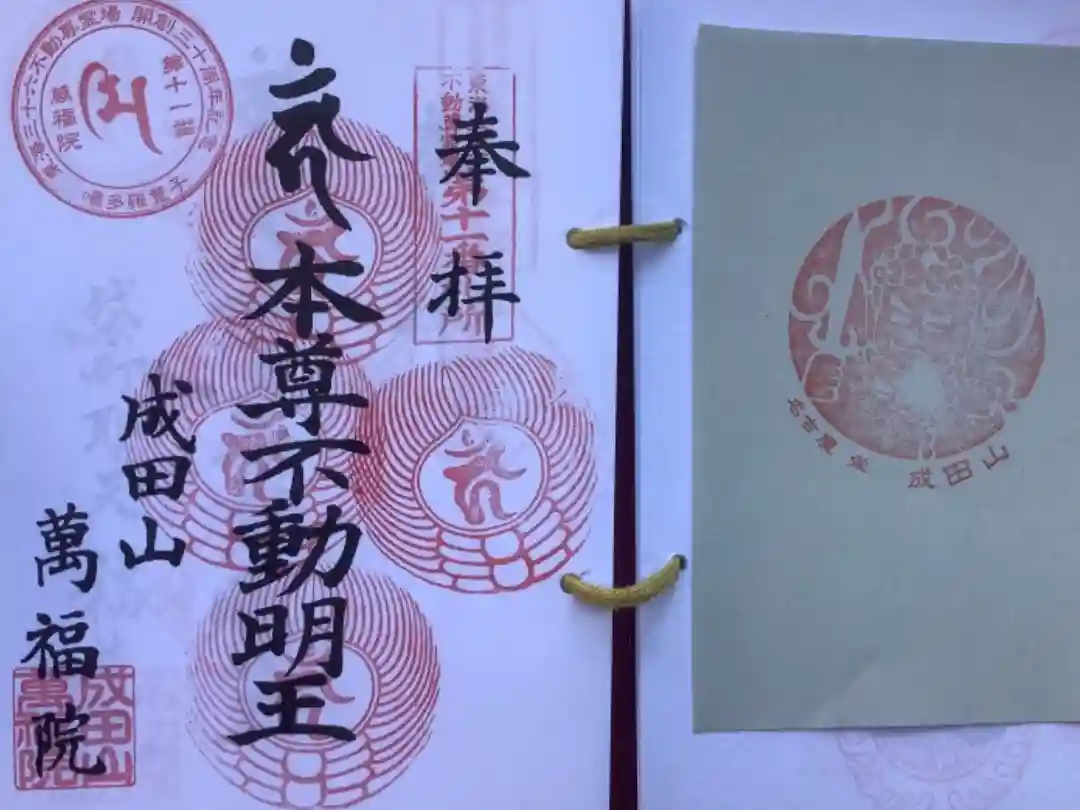 奉拝
本尊不動明王
成田山
萬福院
東海三十六不動尊霊場 開創三十周年記念
第十一番
萬福院
成田山
萬福院
名古屋 栄 成田山